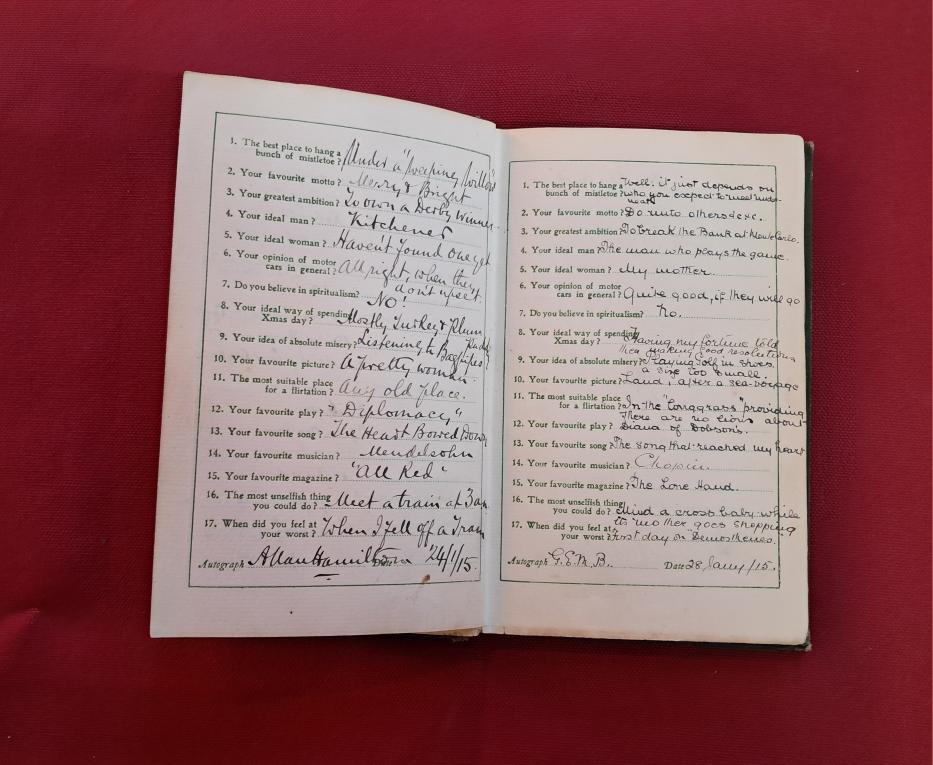 1. The best place to hang a
bunch of mistletoe? Under a "weeping willow"
2. Your favourite motto? Merry & Bright
3. Your greatest ambition? To own a Derby winner
4. Your ideal man? Kitchener
5. Your ideal woman? Haven't found one yet
6. Your opinion of motor
cars in general? All right, when they
don't upset.
7. Do you believe in spiritualism? No!
8. Your ideal way of spending
Xmas day? Mostly Turkey & Plum
9. Your idea of absolute misery? Listening to Bagpipes
10. Your favourite picture? A pretty woman.
11. The most suitable place
for a flirtation? Any old place.
12. Your favourite play? "Diplomacy"
13. Your favourite song? The Heart Bowed Down
14. Your favourite musician? Mendelsohn
15. Your favourite magazine? "All Red"
16. The most unselfish thing
you could do? Meet a train at 3am
17. When did you feel at
your worst? When I fell off a Tram
Autograph Allan Hamilton Date 24/1/15.
1. The best place to hang a
bunch of mistletoe? Well: it just depends on
who you expect to meet
2. Your favourite motto? Do unto others &c &c.
3. Your greatest ambition? To break the Bank at Monte Carlo.
4. Your ideal man? The man who plays the game.
5. Your ideal woman? My mother.
6. Your opinion of motor
cars in general? Quite good, if they will go
7. Do you believe in spiritualism? No.
8. Your ideal way of spending
Xmas day? Having my fortune told
then making good resolutions
9. Your idea of absolute misery? Playing golf in shoes
a size too small.
10. Your favourite picture? Land, after a sea-voyage
11. The most suitable place
for a flirtation? In the "long grass" providing
there are no lions about
12. Your favourite play? Diana of Dobson's.
13. Your favourite song? The song that reached my heart
14. Your favourite musician? Chopin.
15. Your favourite magazine? The Lone Hand.
16. The most unselfish thing
you could do? Mind a cross baby while
its mother goes shopping
17. When did you feel at
your worst? First day on "Demosthenes."
Autograph G.E.M.B. Date 28 Jany/15.